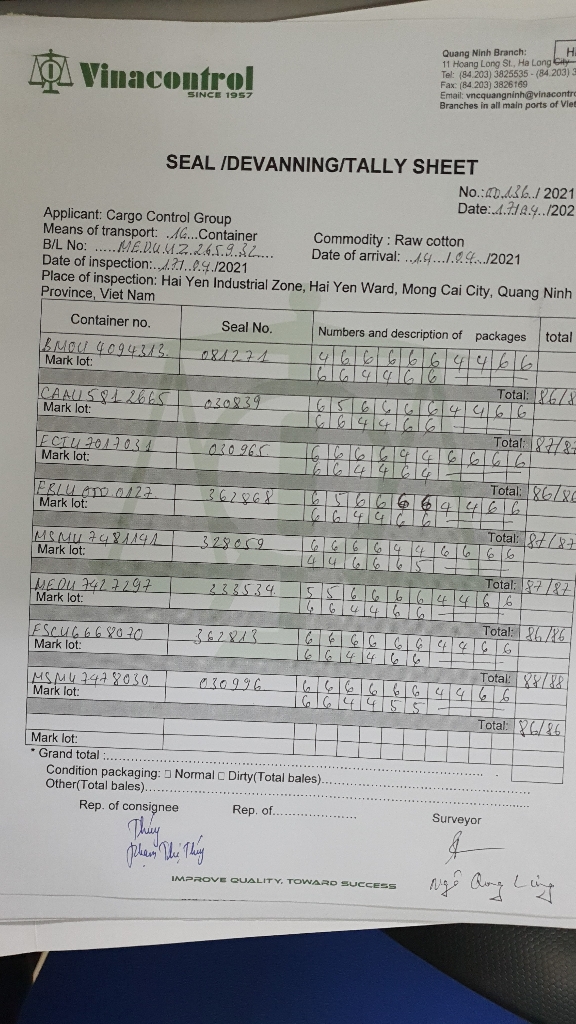 Vinacontrol
SINCE 1957
Quang Ninh Branch:
11 Hoang Long St., Ha Long City
Tel: (84.203) 3825535 - (84.203) 3
Fax: (84.203) 3826169
Email: vncquangninh@vinacontr
Branches in all main ports of Viet
SEAL /DEVANNING/TALLY SHEET
No.: 00.136../ 2021
Date: ..17/04../202
Applicant: Cargo Control Group
Means of transport: .16...Container
Commodity : Raw cotton
B/L No: .....MEDUUZ265932....
Date of arrival: ..14.../.04.../2021
Date of inspection:..17/.04./2021
Place of inspection: Hai Yen Industrial Zone, Hai Yen Ward, Mong Cai City, Quang Ninh
Province, Viet Nam
Container no. Seal No. Numbers and description of packages total
BMOU 4094313 081271 4 6 6 6 6 6 4 4 6 6
Mark lot: 6 6 4 4 6 6
Total: 86/8
CAAU 5812665 030839 6 5 6 6 6 6 4 4 6 6
Mark lot: 6 6 4 4 6 6
Total: 87/87
FCIU 7017031 030965 6 6 6 6 4 4 6 6 6 6
Mark lot: 6 6 4 4 6 4
Total: 86/86
FBLU 0500127 362868 6 5 6 6 6 6 4 4 6 6
Mark lot: 6 6 4 4 6 6
Total: 87/87
MSMU 7481141 328059 6 6 6 6 4 4 6 6 6 6
Mark lot: 4 4 6 6 6 5
Total: 87/87
MEDU 7427297 333534 5 5 6 6 6 6 4 4 6 6
Mark lot: 6 6 4 4 6 6
Total: 86/86
FSCU 6668070 362813 6 6 6 6 6 6 4 4 6 6
Mark lot: 6 6 4 4 6 6
Total: 88/88
MSMU 7478030 030996 6 6 6 6 6 6 4 4 6 6
Mark lot: 6 6 4 4 5 5
Total: 86/86
Mark lot:
* Grand total :
Condition packaging: □ Normal □ Dirty(Total bales)
Other(Total bales)
Rep. of consignee Rep. of Surveyor
Thúy
Phạm Thị Thúy
IMPROVE QUALITY, TOWARD SUCCESS
Ngô Quang